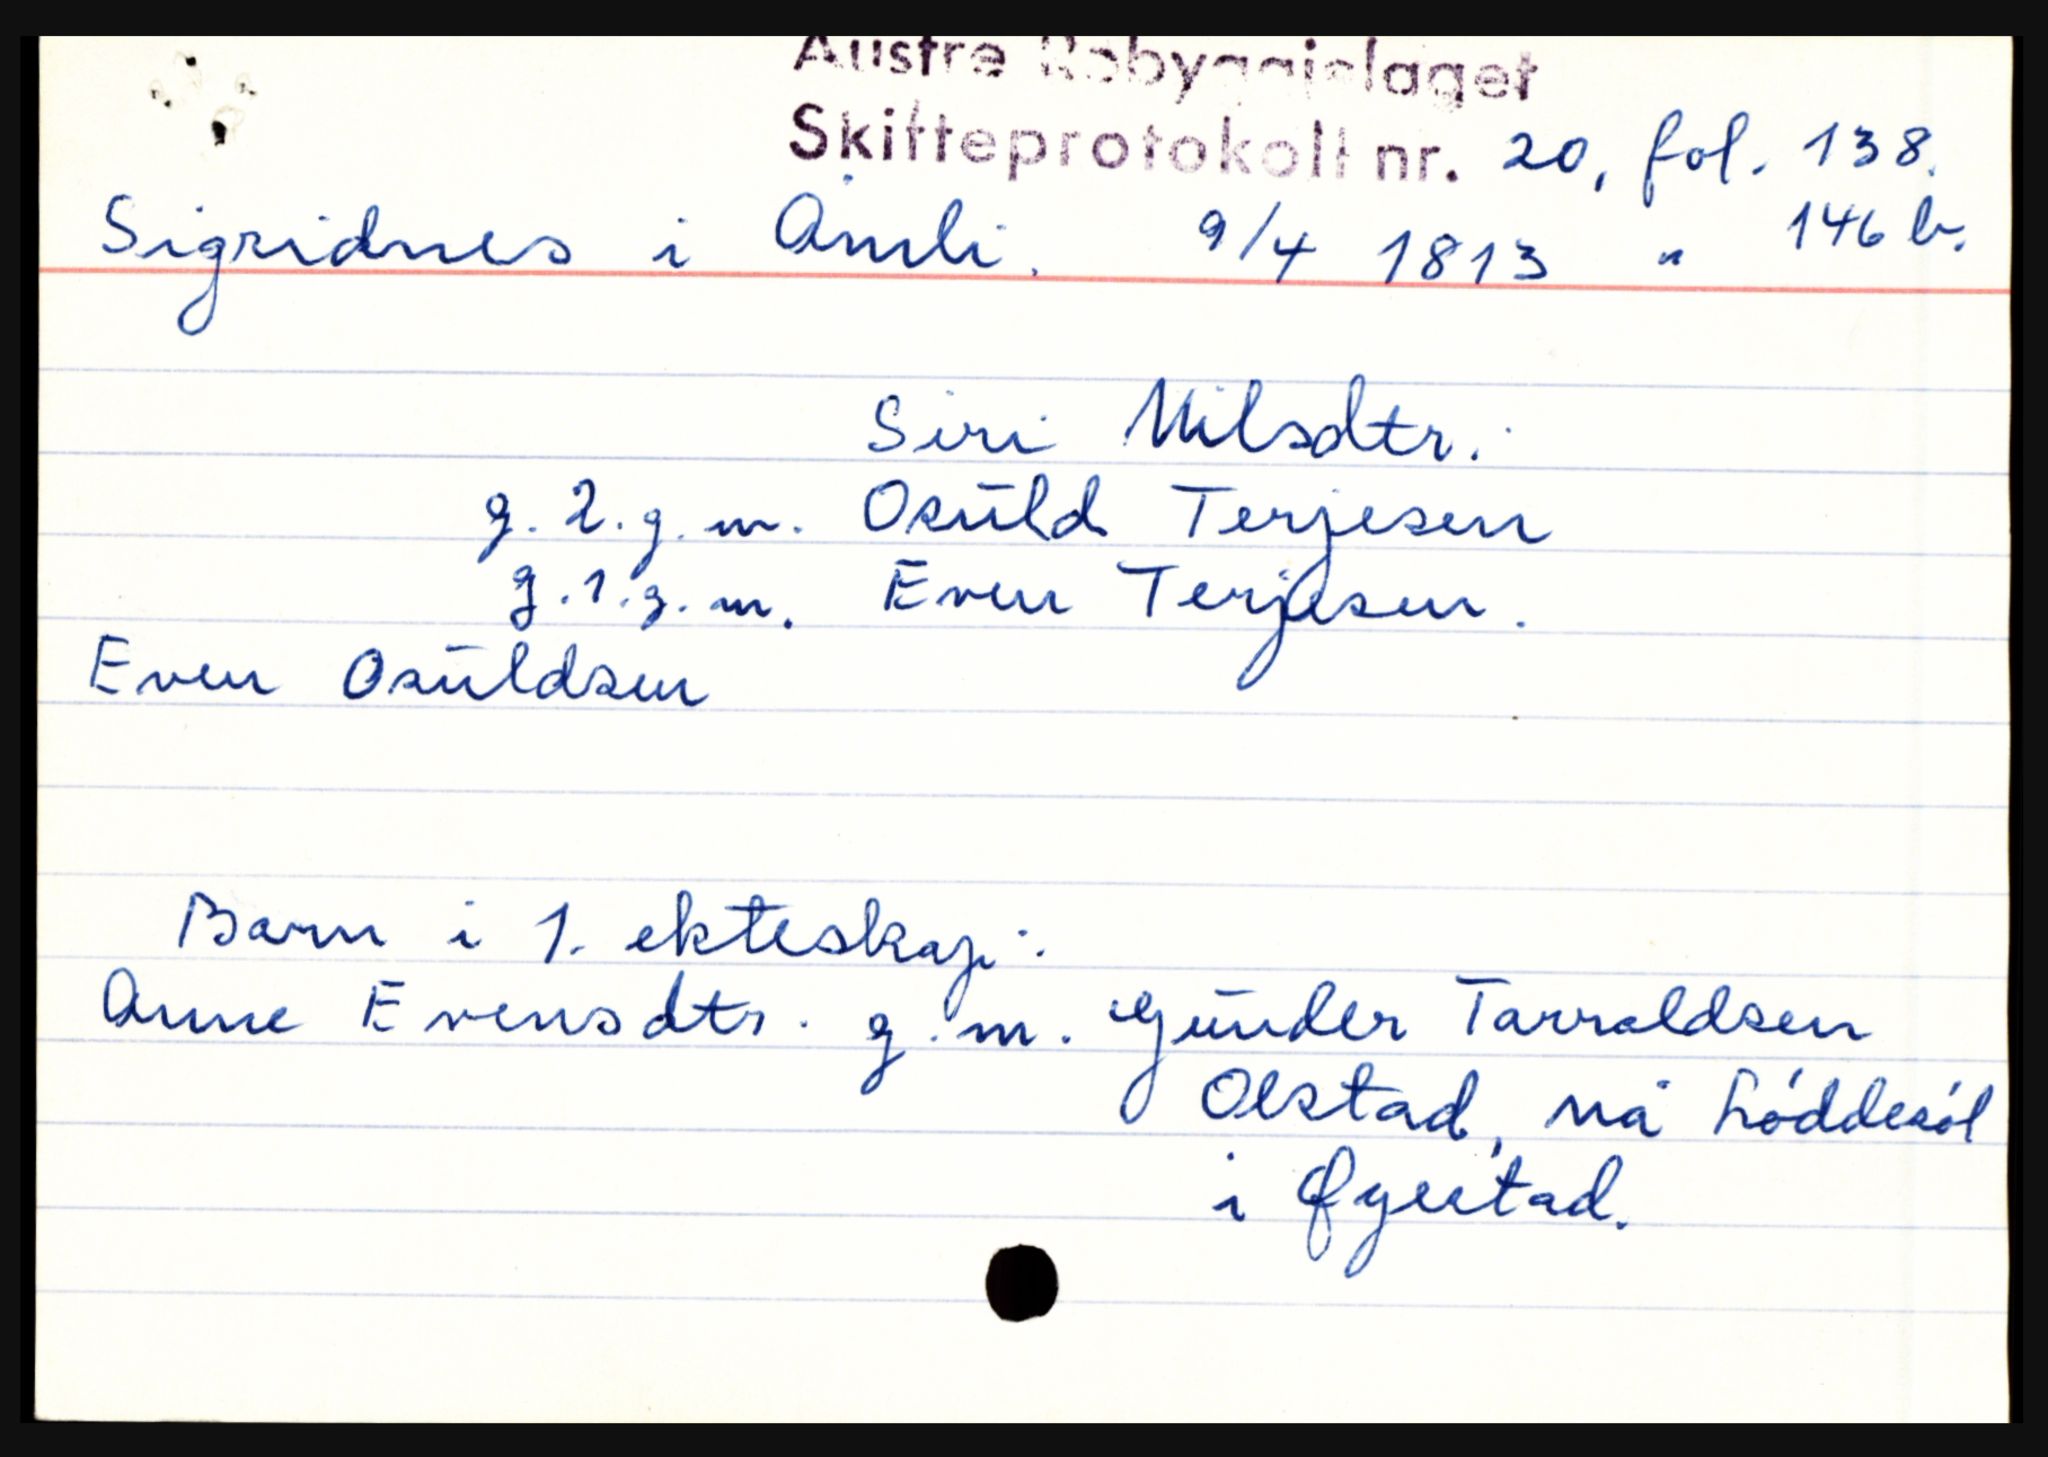 Austre Robyggjelaget
Skifteprotokoll nr. 20, fol. 138.
Sigridnes i Åmli. 9/4 1813 " 146 b.
Siri Nilsdtr.
g. 2. g. m. Osuld Terjesen
g. 1. g. m. Even Terjesen.
Even Osuldsen
Barn i 1. ekteskap:
Anne Evensdtr. g. m. Gunder Tarraldsen
Olstad, nå Lóddesól
i Øyestad.